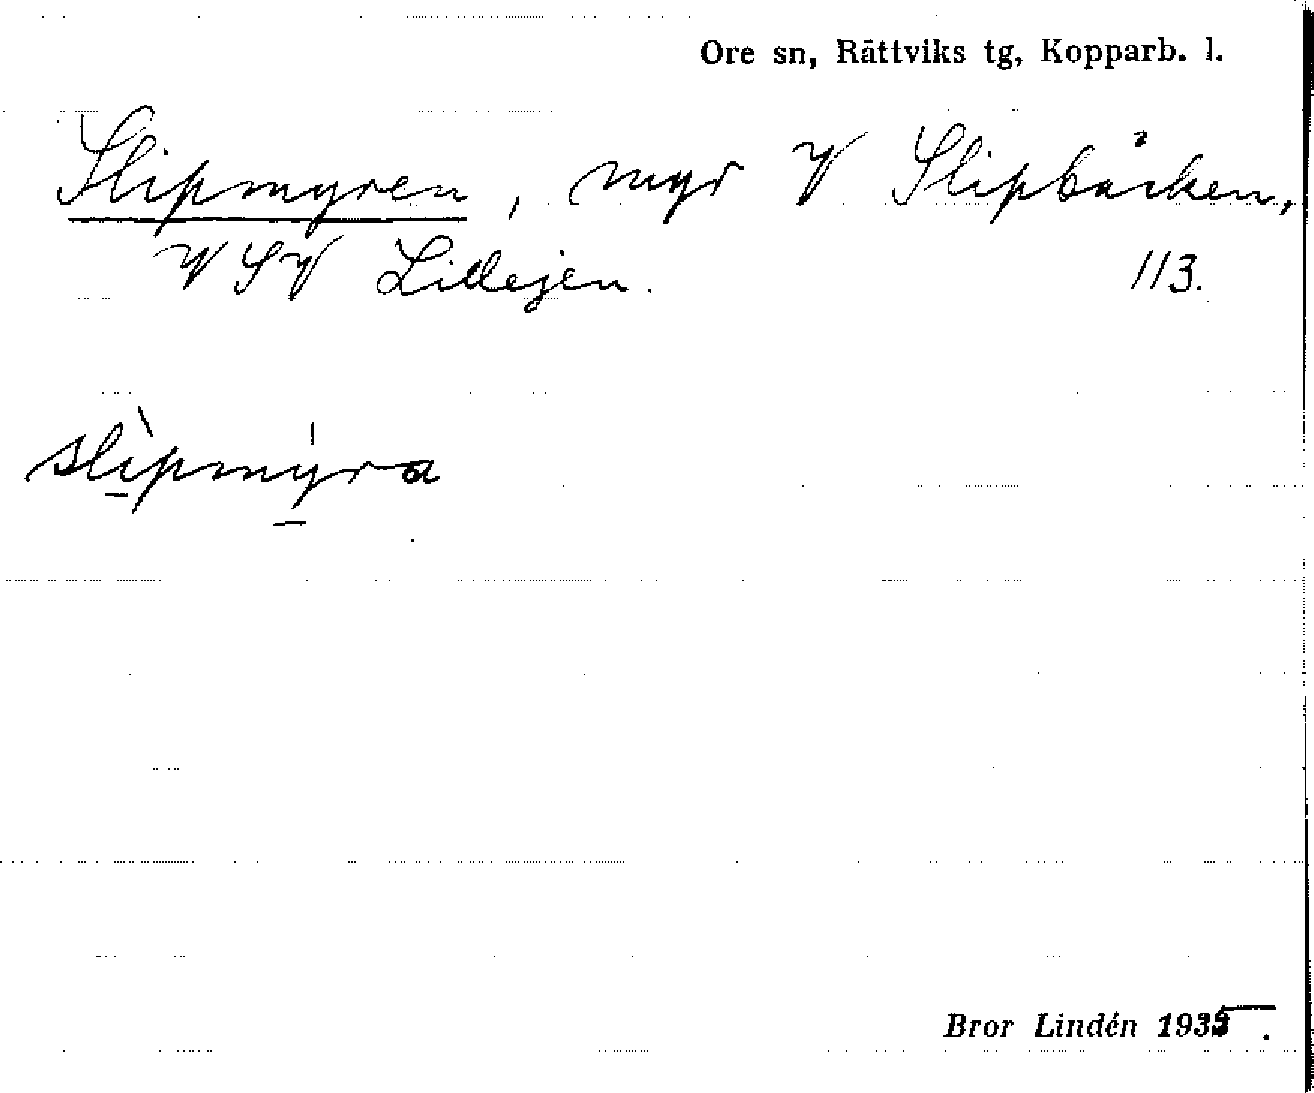 Ore sn, Rättviks tg, Kopparb. l.
Slipmyren, myr V Slipbäcken,
VSV Lillejen. 113.
slìpmýra
Bror Lindén 1935.